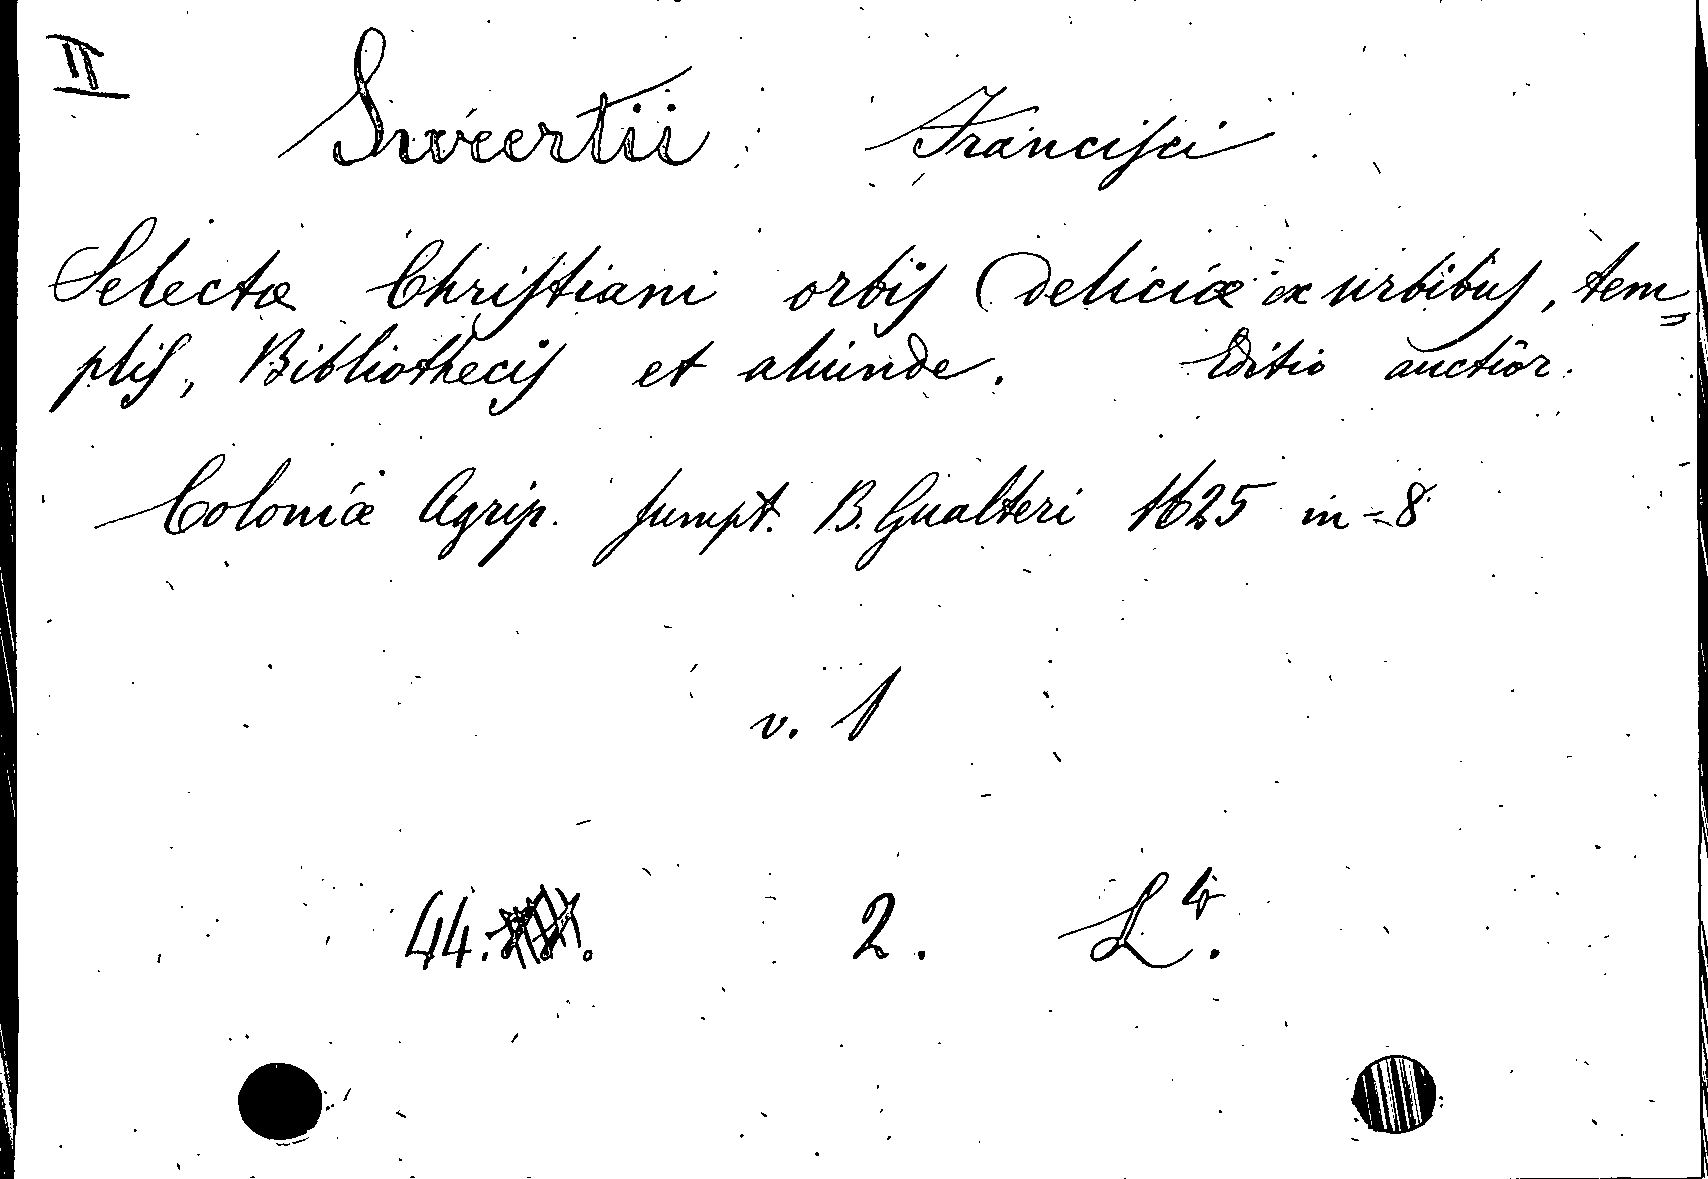 II
Sweertii Francisci
Selectæ Christiani orbis Deliciæ ex urbibus, tem=
plis, Bibliothecis et aliunde. Editio auctior.
Coloniæ Agrip. sumpt. B. Gualteri 1625 in=8
v. 1
44. 2. L⁴.